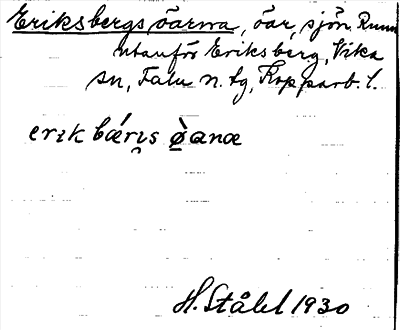 Eriksbergs öarna, öar, sjön Runn
utanför Eriksberg, Vika
sn, Falu n. tg, Kopparb. l.
erik bǽrı̥s ø̀anæ
H. Ståhl 1930